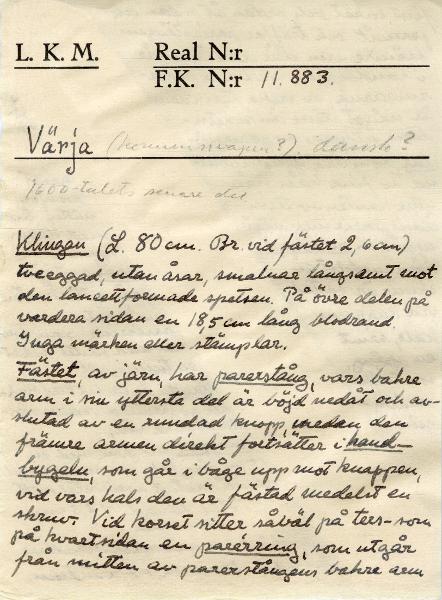 L. K. M. Real N:r
F.K. N:r 11.883.
Värja (kommissvapen?), dansk?
1600-talets senare del
Klingan (L. 80 cm. Br. vid fästet 2,6 cm)
tveeggad, utan åsar, smalnar långsamt mot
den lancettformade spetsen. På övre delen på
vardera sidan en 18,5 cm lång blodrand.
Inga märken eller stämplar.
Fästet, av järn, har parerstång, vars bakre
arm i sin ytterste del är böjd nedåt och av-
slutad av en rundad knopp, medan den
främre armen direkt fortsätter i hand-
bygeln, som går i båge upp mot knappen,
vid vars hals den är fästad medelst en
skruv. Vid korset sitter såväl på ters- som
på kvartsidan en parérring, som utgår
från mitten av parerstångens bakre arm